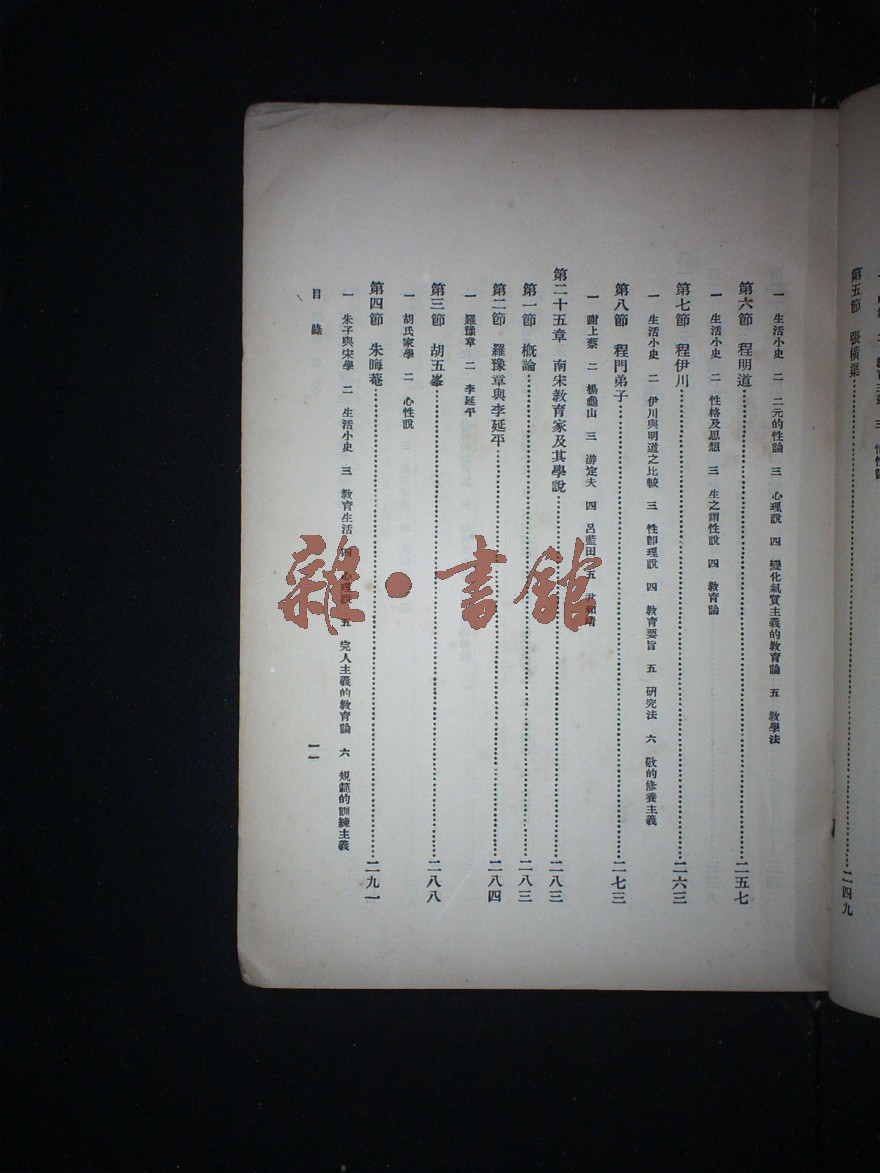 第五節 張橫渠……二四九
一 生活小史 二 二元的性論 三 心理說 四 變化氣質主義的教育論 五 教學法
第六節 程明道……二五七
一 生活小史 二 性格及思想 三 生之謂性說 四 教育論
第七節 程伊川……二六三
一 生活小史 二 伊川與明道之比較 三 性卽理說 四 教育要旨 五 研究法 六 敬的修養主義
第八節 程門弟子……二七三
一 謝上蔡 二 楊龜山 三 游定夫 四 呂藍田 五 尹和靖
第二十五章 南宋教育家及其學說……二八三
第一節 概論……二八三
第二節 羅豫章與李延平……二八四
一 羅豫章 二 李延平
第三節 胡五峯……二八八
一 胡氏家學 二 心性說
第四節 朱晦菴……二九一
一 朱子與宋學 二 生活小史 三 教育生活 四 心理說 五 完人主義的教育論 六 規範的訓練主義
目錄 一一
雜·書館